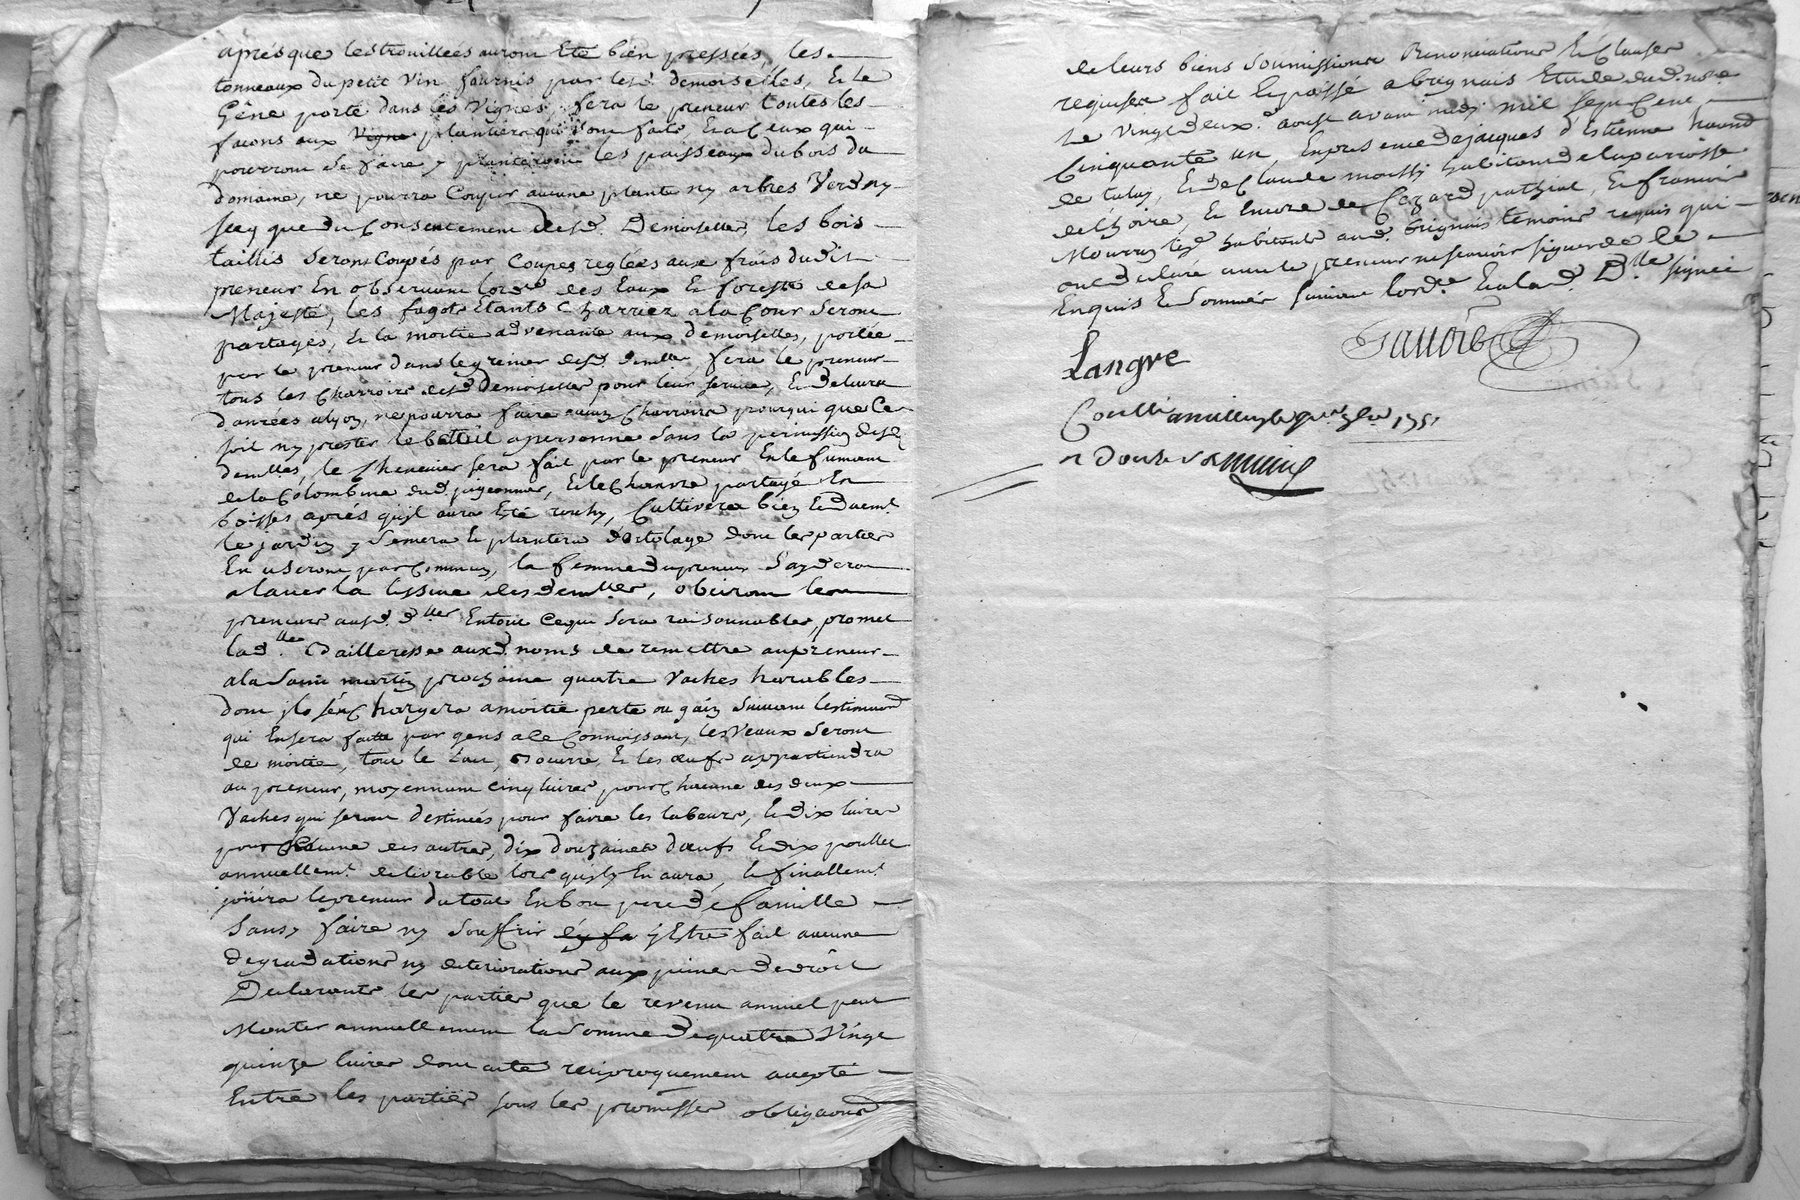 aprés que les trouillées auront Eté bien pressées, les
tonneaux du petit vin fournis par lesd. demoiselles, Et le
Gêne porté dans les Vignes, fera le preneur toutes les
facons aux Vigne plantiers qui sont faits, Et a Ceux qui
pourront se faire y planteront les paisseaux du bois du
domaine, ne pourra Couper aucune plante ny arbres Verd ny
secq que du Consentement desd. Demoiselles, les bois
taillis seront Coupés par Coupes reglées aux frais dudit
preneur En observant lordre des Eaux Et forests de sa
Majesté, les fagots Etants Charriez a la Cour seront
partagés, Et la moitié advenante aux demoiselles, portée
par le preneur dans le grenier desd. demlles, fera le preneur
tous les Charroirs desd. Demoiselles pour leur service, Et de leurs
danrées a lyon, ne pourra faire aucun Charroirs pour qui que Ce
soit ny prester le bétail a personne sans la permission desd.
demlles, le Chenevier sera fait par le preneur En le fumant
de la Colombine dud. pigeonnier, Et le Chanvre partagé En
boisses aprés qu'jl aura Eté rouhy, Cultivera bien Et duemt
le jardin y semera Et plantera d'ortolage dont les parties
En useront par Commun, la femme du preneur s'aydera
a laver la lissive des demlles, obeiront les
preneurs ausd. dlles En tout Ce qui sera raisonnables, promet
lad. dlle Bailleresse auxd. noms de remettre au preneur
a la saint martin prochaine quatre Vaches harables
dont jl s'en Chargera a moitié perte ou gain suivant lestimaõn
qui En sera faitte par gens a Ce Connoissant, les Veaux seront
de moitié, tout le lait, Beurre, Et les œufs appartiendra
au preneur, moyennant cinq livres pour Chacune des deux
Vaches qui seront destinées pour faire les labeurs, Et dix livres
pour Chacune des autres, dix douzaines d'œufs Et dix poullets
annuellemt. delivrable lors qu'jl y En aura, Et finallemt.
joüira le preneur du tout En bon pere de famille
sans y faire ny souffrir êy fa y Estre fait aucune
degradations ny deteriorations aux peines de droit
Declarants les parties que le revenu annuel peut
Monter annuellement la somme de quatre Vingt
quinze livres dont acte reciproquement accepté
Entre les parties sous les promesses obligaõns
de leurs biens soumissions Renonciations Et Clauses
requises fait Et passé a brignais Etude dud. nore
le Vingt deux. d'aoust avant midy mil sept Cent
Cinquante un, En presence de jacques d'Estienne
de taluy, Et de Claude moussy habitant de la parroisse
Mourry habitants aud. brignais temoins requis qui
ont declaré avec le preneur ne scavoir signer de Ce
Enquis Et sommés suivant lord.ce Et a lad. Dlle signée
Langre
1751